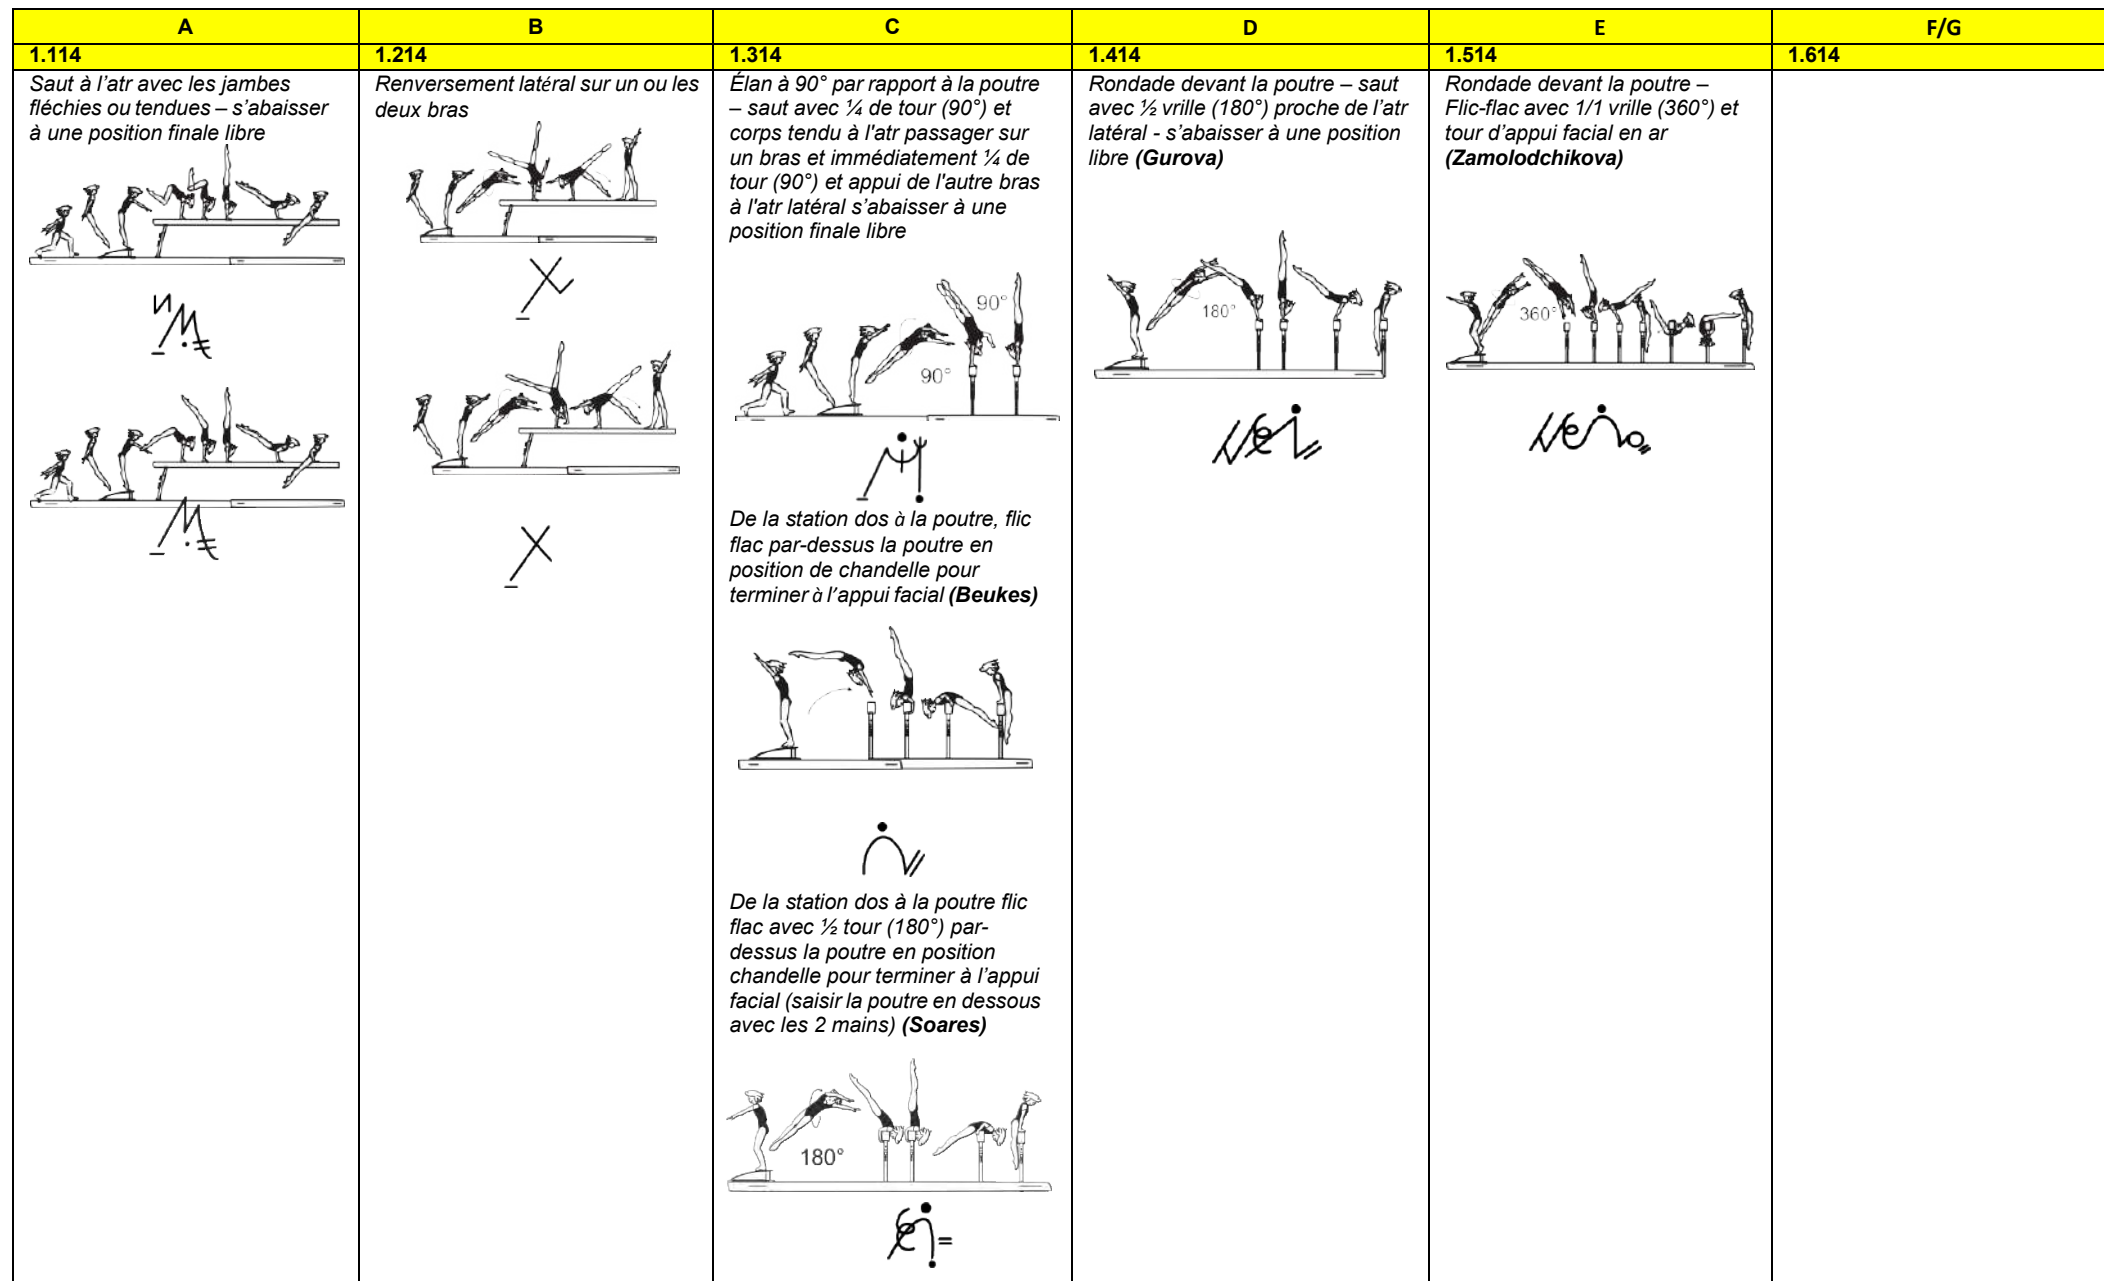 A
B
C
D
E
F/G
1.114
1.214
1.314
1.414
1.514
1.614
Saut à l'atr avec les jambes
fléchies ou tendues – s'abaisser
à une position finale libre
Renversement latéral sur un ou les
deux bras
Élan à 90° par rapport à la poutre
– saut avec ¼ de tour (90°) et
corps tendu à l'atr passager sur
un bras et immédiatement ¼ de
tour (90°) et appui de l'autre bras
à l'atr latéral s'abaisser à une
position finale libre
90°
90°
De la station dos à la poutre, flic
flac par-dessus la poutre en
position de chandelle pour
terminer à l'appui facial (Beukes)
De la station dos à la poutre flic
flac avec ½ tour (180°) par-
dessus la poutre en position
chandelle pour terminer à l'appui
facial (saisir la poutre en dessous
avec les 2 mains) (Soares)
180°
Rondade devant la poutre – saut
avec ½ vrille (180°) proche de l'atr
latéral - s'abaisser à une position
libre (Gurova)
180°
Rondade devant la poutre –
Flic-flac avec 1/1 vrille (360°) et
tour d'appui facial en ar
(Zamolodchikova)
360°